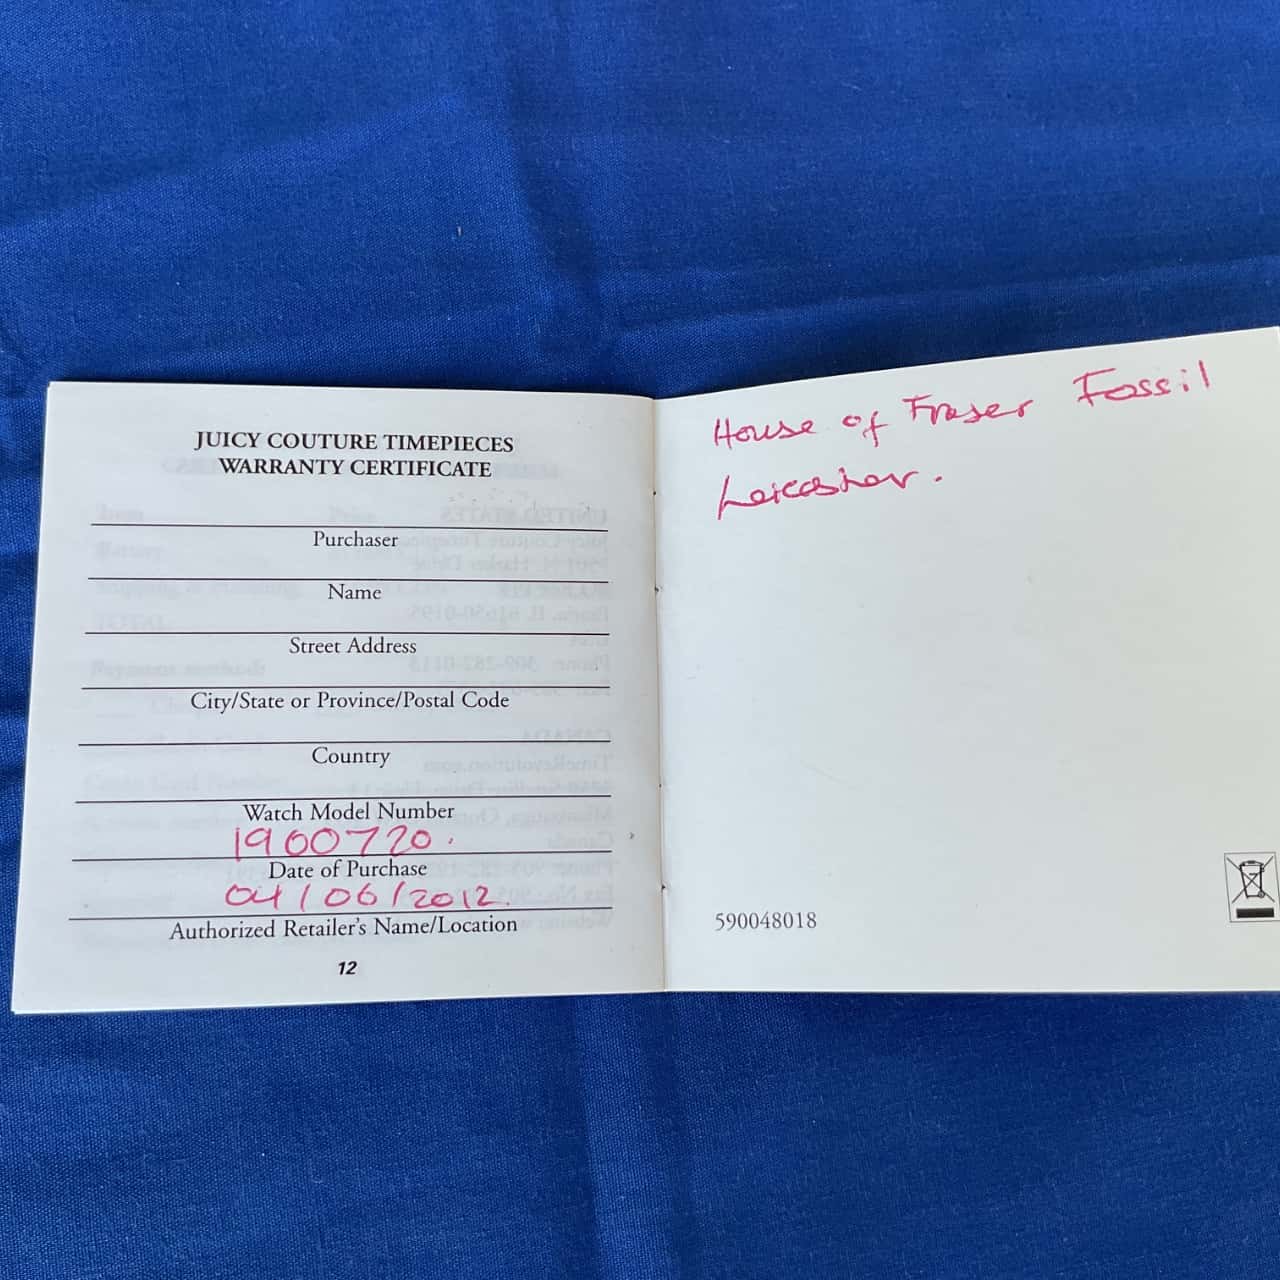 JUICY COUTURE TIMEPIECES
WARRANTY CERTIFICATE
Purchaser
Name
Street Address
City/State or Province/Postal Code
Country
Watch Model Number
1900720.
Date of Purchase
04/06/2012.
Authorized Retailer's Name/Location
12
House of Fraser Fossil
Leicester.
590048018